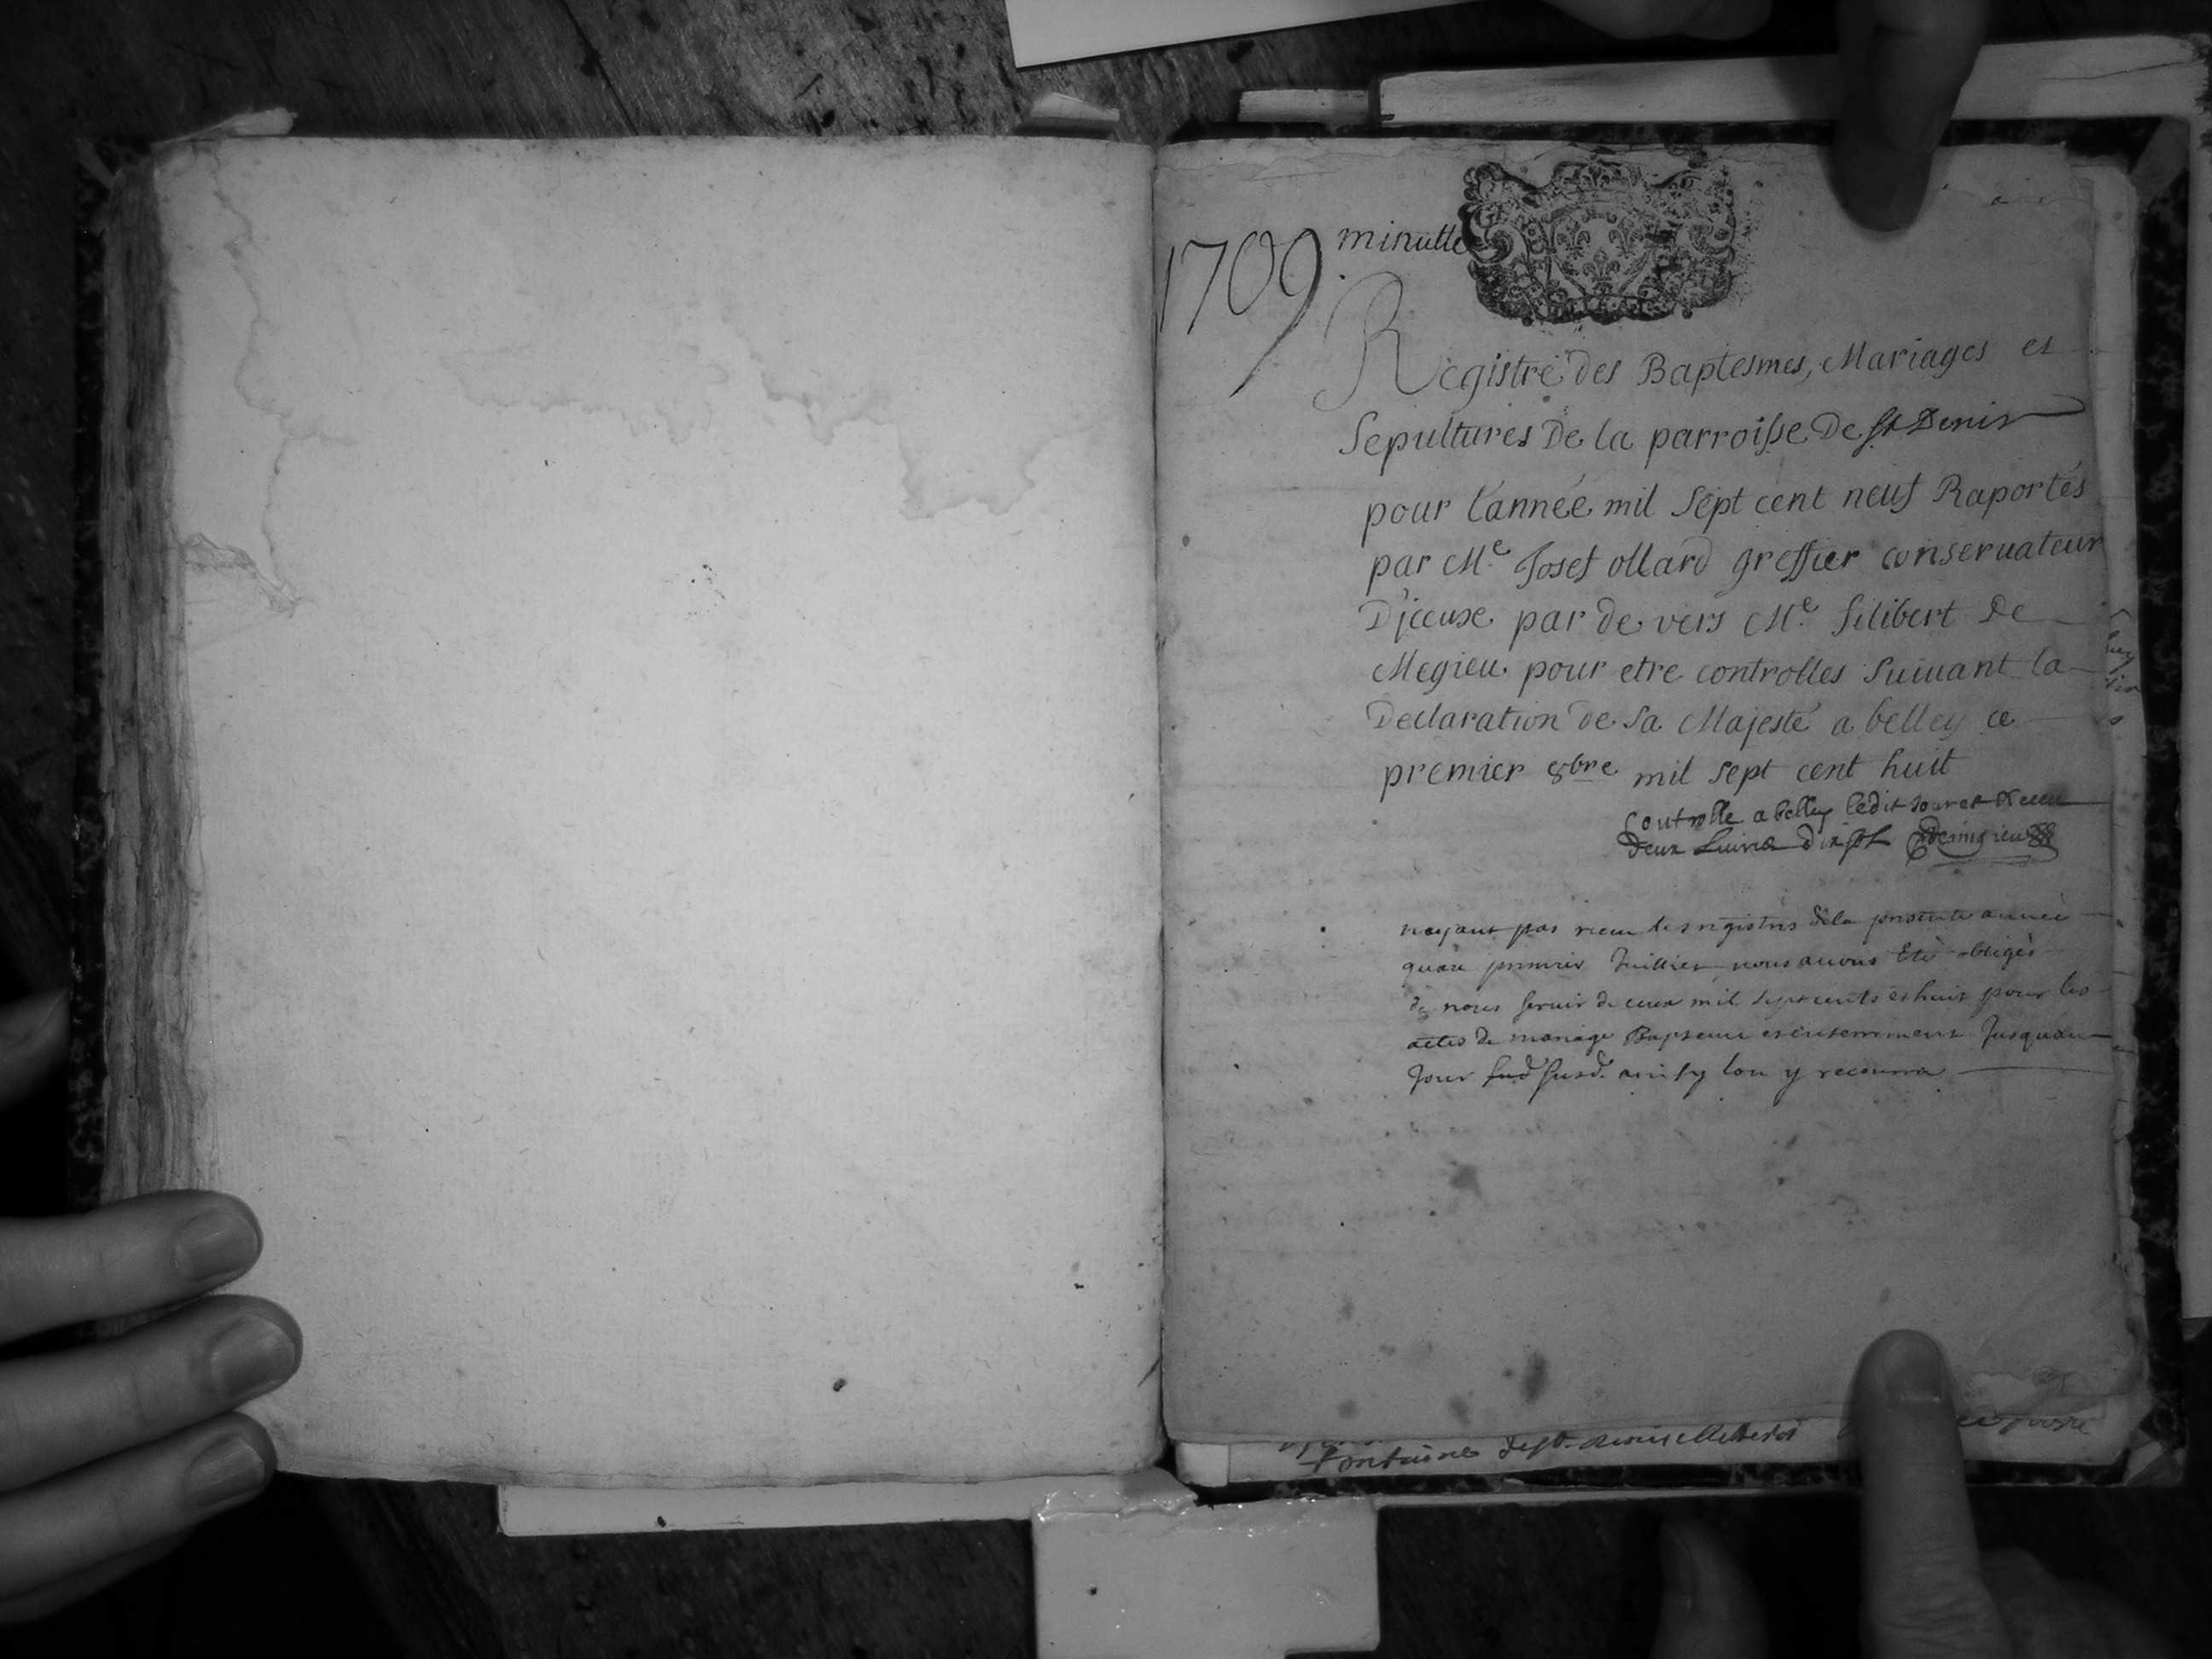 1709
minutte
Registre des Baptesmes, Mariages et
Sepultures De la parroisse De St Denis
pour l'année mil sept cent neuf Raportés
par Me Josef ollard greffier conseruateur
D'jceuse par de vers Me. filibert De
Megieu pour etre controlles Suiuant la
Declaration de Sa Majesté a belley ce
premier 8bre mil sept cent huit
Controlle a belley ledit jour et Receu
deux Liures dix sols Demegieu
nayant pas receu les registres de la presente année
quau premier Juillier nous auons Eté obligés
de nous seruir de ceux mil sept cents et huit pour les
actes de mariage Bapteme et enterrement Jusquau
Jour sud susd. ainsy lon y recourra
fontaines